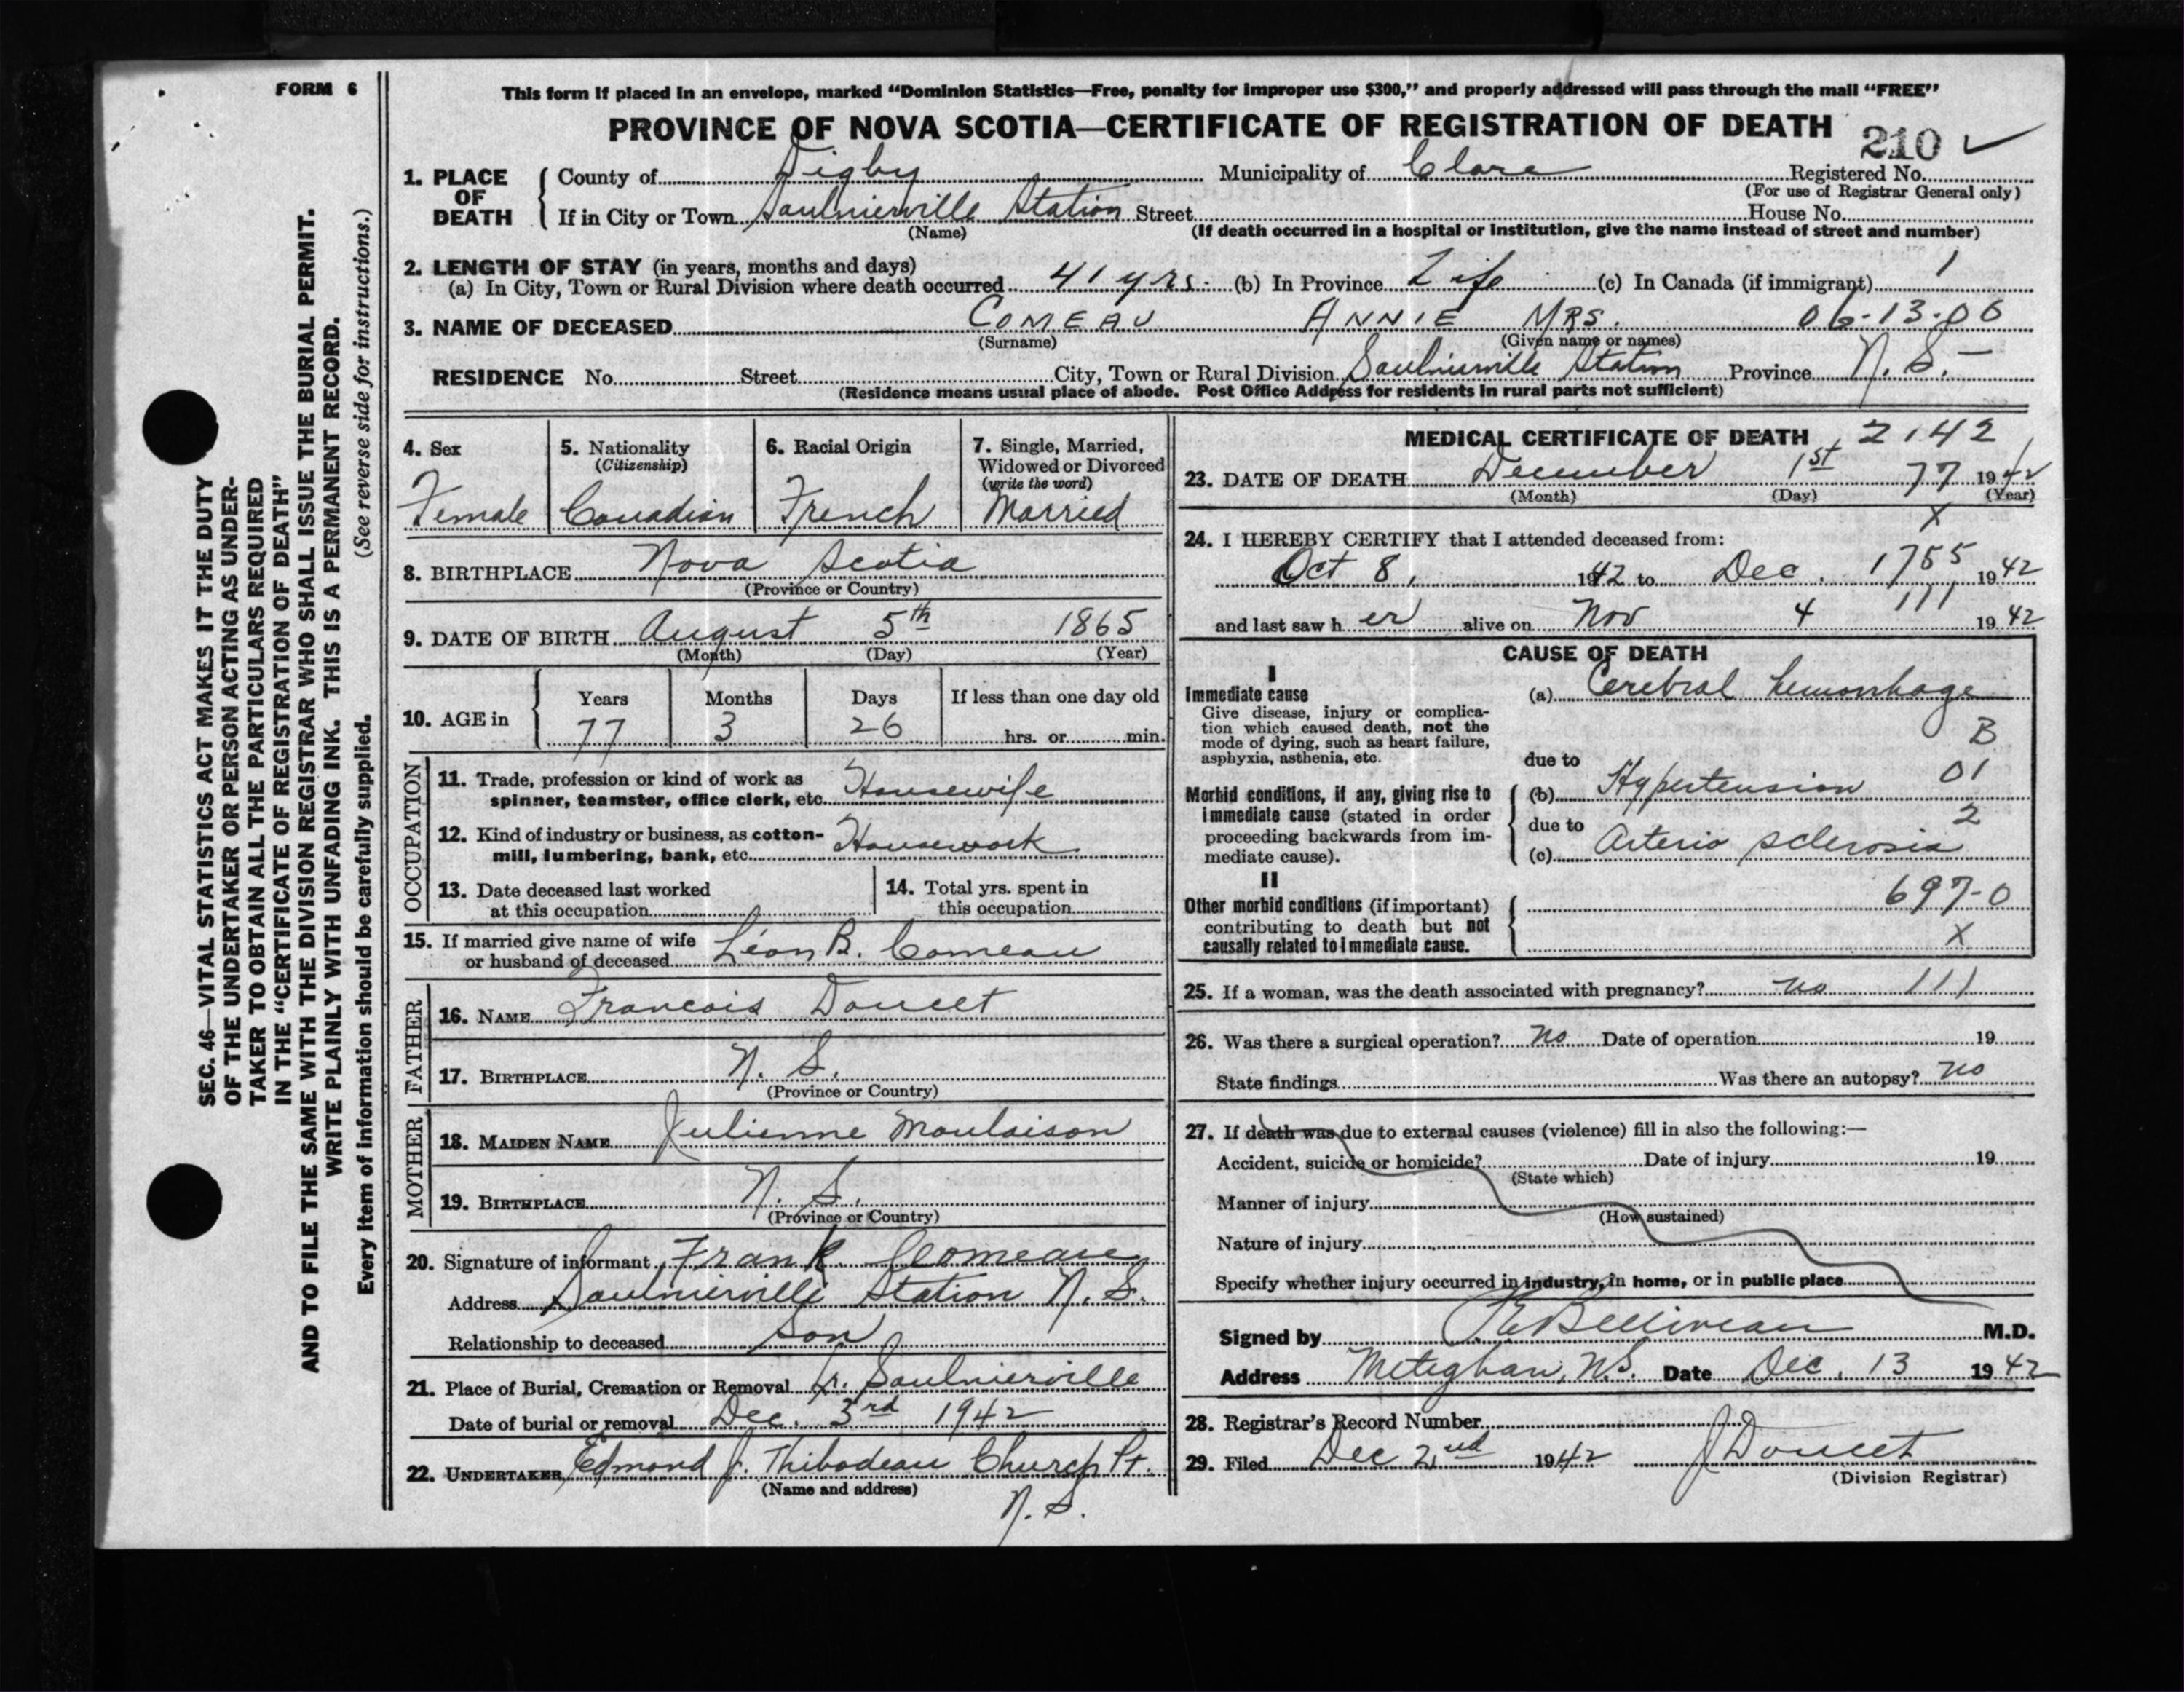 FORM 6
This form if placed in an envelope, marked “Dominion Statistics—Free, penalty for improper use $300,” and properly addressed will pass through the mail “FREE”
PROVINCE OF NOVA SCOTIA—CERTIFICATE OF REGISTRATION OF DEATH 210 ✓
1. PLACE OF DEATH
County of Digby Municipality of Clare Registered No.
(For use of Registrar General only)
If in City or Town Saulnierville Station Street House No.
(Name) (If death occurred in a hospital or institution, give the name instead of street and number)
2. LENGTH OF STAY (in years, months and days) 1
(a) In City, Town or Rural Division where death occurred 41 yrs. (b) In Province Life (c) In Canada (if immigrant)
3. NAME OF DECEASED COMEAU ANNIE MRS. 06-13-06
(Surname) (Given name or names)
RESIDENCE No. Street City, Town or Rural Division Saulnierville Station Province N. S. —
(Residence means usual place of abode. Post Office Address for residents in rural parts not sufficient)
4. Sex
Female
5. Nationality
(Citizenship)
Canadian
6. Racial Origin
French
7. Single, Married,
Widowed or Divorced
(write the word)
Married
8. BIRTHPLACE Nova Scotia
(Province or Country)
9. DATE OF BIRTH August 5th 1865
(Month) (Day) (Year)
10. AGE in
Years Months Days If less than one day old
77 3 26 hrs. or min.
OCCUPATION
11. Trade, profession or kind of work as
spinner, teamster, office clerk, etc. Housewife
12. Kind of industry or business, as cotton-
mill, lumbering, bank, etc. Housework
13. Date deceased last worked
at this occupation
14. Total yrs. spent in
this occupation
15. If married give name of wife
or husband of deceased Léon B. Comeau
FATHER
16. NAME Francois Doucet
17. BIRTHPLACE N. S.
(Province or Country)
MOTHER
18. MAIDEN NAME Julienne Moulaison
19. BIRTHPLACE N. S.
(Province or Country)
20. Signature of informant Frank Comeau
Address Saulnierville Station N. S.
Relationship to deceased Son
21. Place of Burial, Cremation or Removal Lr. Saulnierville
Date of burial or removal Dec. 3rd 1942
22. UNDERTAKER Edmond J. Thibodeau Church Pt.
(Name and address)
N. S.
MEDICAL CERTIFICATE OF DEATH 2142
23. DATE OF DEATH December 1st 77 1942
(Month) (Day) (Year)
X
24. I HEREBY CERTIFY that I attended deceased from:
Oct 8, 1942 to Dec. 1755 1942
and last saw her alive on Nov 4 111 1942
CAUSE OF DEATH
I
Immediate cause (a) Cerebral hemorrhage
Give disease, injury or complica-
tion which caused death, not the
mode of dying, such as heart failure,
asphyxia, asthenia, etc.
B
due to
01
Morbid conditions, if any, giving rise to (b) Hypertension
immediate cause (stated in order
2
proceeding backwards from im- due to
mediate cause). (c) Arterio sclerosis
II
Other morbid conditions (if important) 697-0
contributing to death but not
causally related to immediate cause. X
25. If a woman, was the death associated with pregnancy? no 111
26. Was there a surgical operation? No Date of operation 19
State findings Was there an autopsy? no
27. If death was due to external causes (violence) fill in also the following:—
Accident, suicide or homicide? Date of injury 19
(State which)
Manner of injury
(How sustained)
Nature of injury
Specify whether injury occurred in industry, in home, or in public place
Signed by Belliveau M.D.
Address Meteghan, N.S. Date Dec. 13 1942
28. Registrar's Record Number
29. Filed Dec 2nd 1942 J Doucet
(Division Registrar)
SEC. 46—VITAL STATISTICS ACT MAKES IT THE DUTY
OF THE UNDERTAKER OR PERSON ACTING AS UNDER-
TAKER TO OBTAIN ALL THE PARTICULARS REQUIRED
IN THE “CERTIFICATE OF REGISTRATION OF DEATH”
AND TO FILE THE SAME WITH THE DIVISION REGISTRAR WHO SHALL ISSUE THE BURIAL PERMIT.
WRITE PLAINLY WITH UNFADING INK. THIS IS A PERMANENT RECORD.
Every item of information should be carefully supplied. (See reverse side for instructions.)